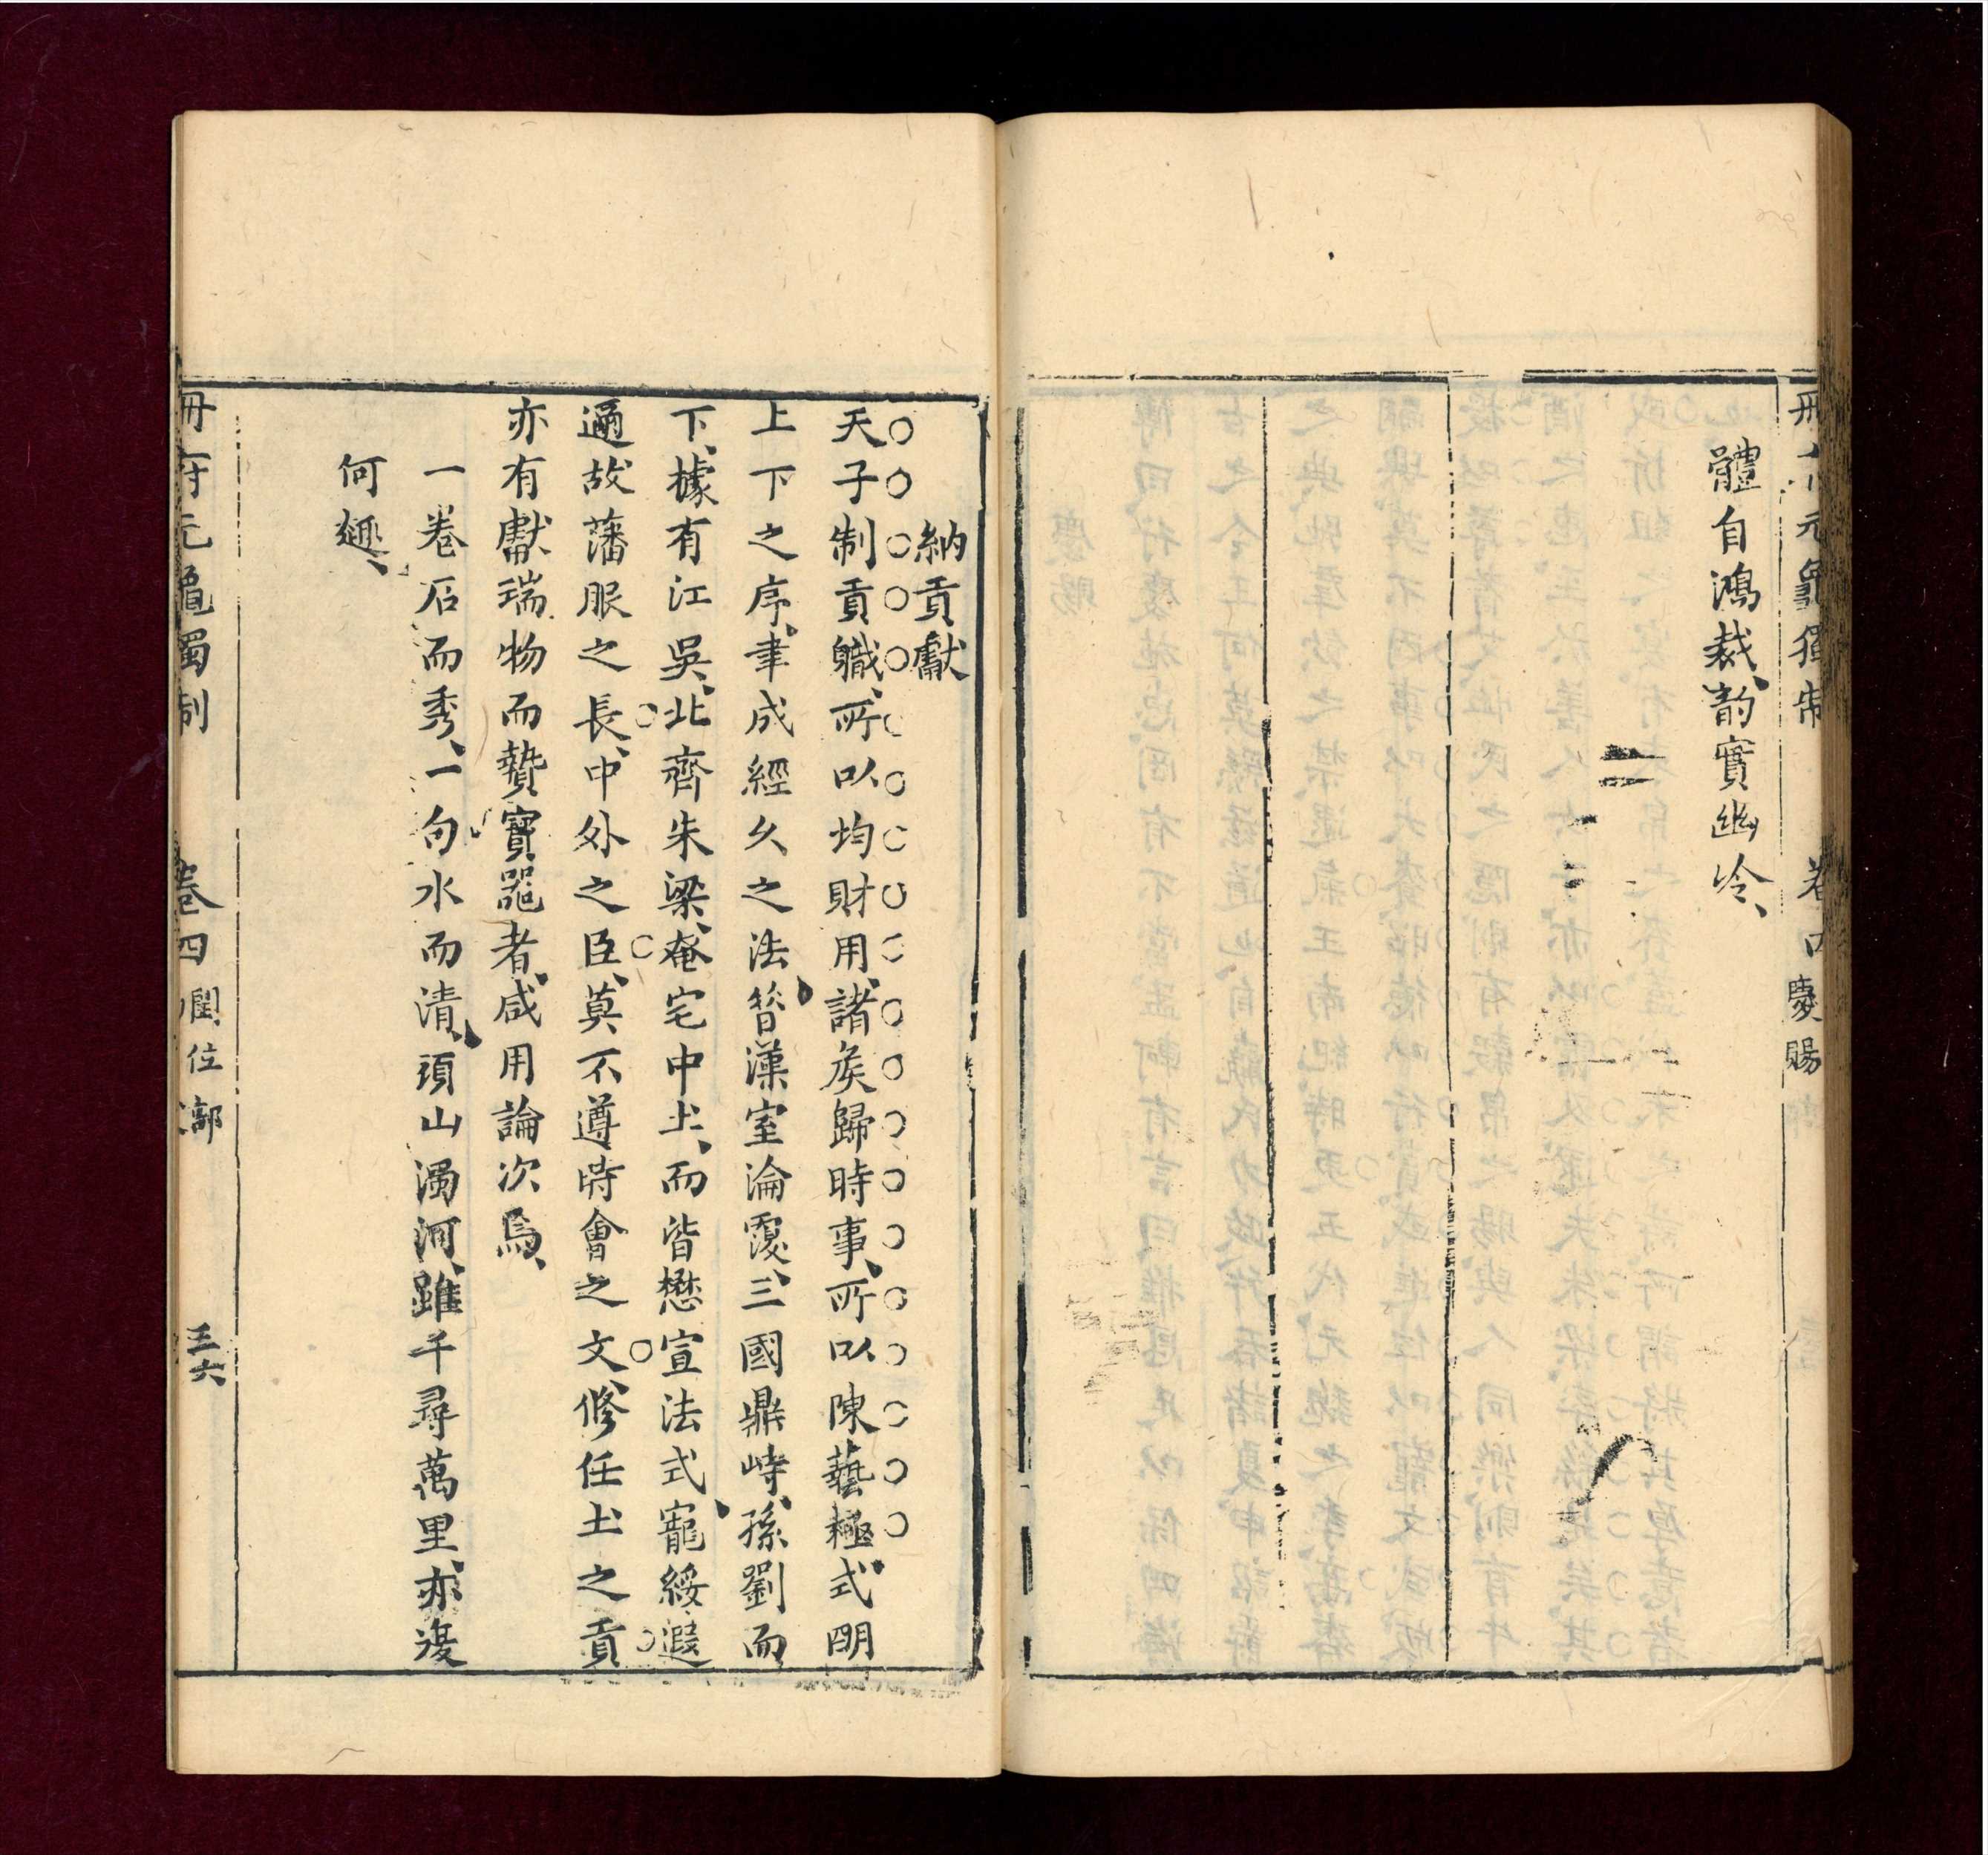 冊府元龜獨制
卷四
慶賜
體自鴻裁、韵實幽冷、
納貢獻
天子制貢職、所以均財用、諸矦歸時事、所以陳藝極、式明
上下之序、聿成經久之法、昝漢室淪覆、三國鼎峙、孫劉而
下、據有江吳、北齊朱梁、奄宅中土、而皆懋宣法式、寵綏遐
邇、故藩服之長、中外之臣、莫不遵時會之文、修任土之貢
亦有獻瑞物而贄寶噐者、咸用論次焉、
一卷石而秀、一句水而清、頊山濁河、雖千尋萬里、亦復
何趣、
冊府元龜獨制
卷四
閏位部
三六